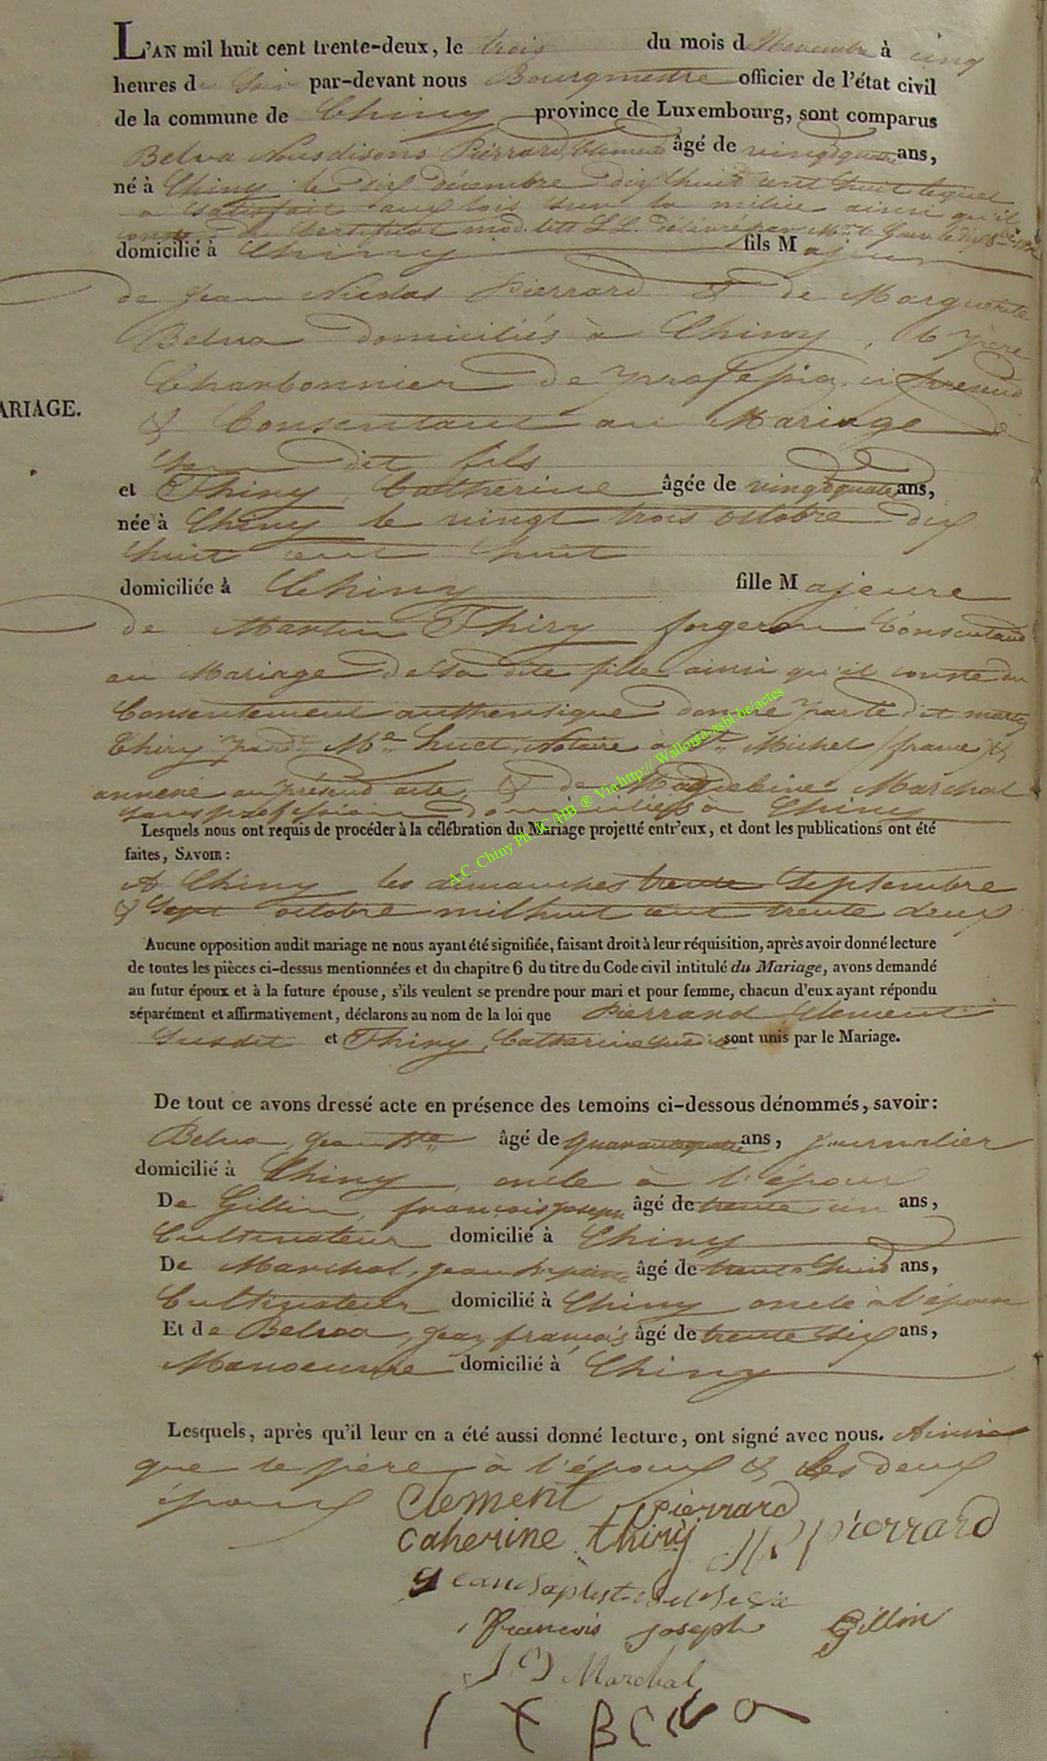 L'AN mil huit cent trente-deux, le trois du mois de Novembre à cinq
heures du soir par-devant nous Bourgmestre officier de l'état civil
de la commune de Chiny province de Luxembourg, sont comparus
Belva Nous disons Pierrard, Clement âgé de vingt quatre ans,
né à Chiny le dix décembre dix huit cent huit lequel
a satisfait aux lois sur la milice ainsi qu'il
conste de Certificat mod. litt. LL. délivré par
domicilié à Chiny fils Majeur
de Jean Nicolas Pierrard & de Marguerite
Belva domiciliés à Chiny, le père
Charbonnier de profession ici présent
& Consentant au Mariage de
son dit fils
ARIAGE.
et Thiry, Catherine âgée de vingt quatre ans,
née à Chiny le vingt trois octobre dix
huit cent huit
domiciliée à Chiny fille Majeure
de Martin Thiry forgeron Consentant
au Mariage de sa dite fille ainsi qu'il conste du
Consentement authentique donné par le dit Martin
Thiry pardt Me huet, Notaire à St. Michel (france) &
annexé au présent acte & de Magdeleine Marchal
sans profession domiciliés à Chiny
Lesquels nous ont requis de procéder à la célébration du Mariage projetté entr'eux, et dont les publications ont été
faites, SAVOIR :
A Chiny les dimanches trente Septembre
& Sept octobre mil huit cent trente deux
Aucune opposition audit mariage ne nous ayant été signifiée, faisant droit à leur réquisition, après avoir donné lecture
de toutes les pièces ci-dessus mentionnées et du chapitre 6 du titre du Code civil intitulé du Mariage, avons demandé
au futur époux et à la future épouse, s'ils veulent se prendre pour mari et pour femme, chacun d'eux ayant répondu
séparément et affirmativement, déclarons au nom de la loi que Pierrard Clement
Susdit et Thiry, Catherine susdite sont unis par le Mariage.
De tout ce avons dressé acte en présence des temoins ci-dessous dénommés, savoir :
Belva, Jean Bte âgé de quarante quatre ans, journalier
domicilié à Chiny, oncle à l'époux
De Gillin, françois joseph âgé de trente un ans,
Cultivateur domicilié à Chiny
De Marchal, Jean âgé de trente huit ans,
Cultivateur domicilié à Chiny oncle à l'épouse
Et de Belva, Jean françois âgé de trente six ans,
Manoeuvre domicilié à Chiny
Lesquels, après qu'il leur en a été aussi donné lecture, ont signé avec nous. Ainsi
que le père à l'époux & les deux
époux Clement pierrard
Caherine thiry pierrard
Jean Baptiste Belva
françois joseph Gillin
Marchal
Belva
A.C. Chiny Ph JC/HB ® Via http://Wallonia-asbl-be/actes